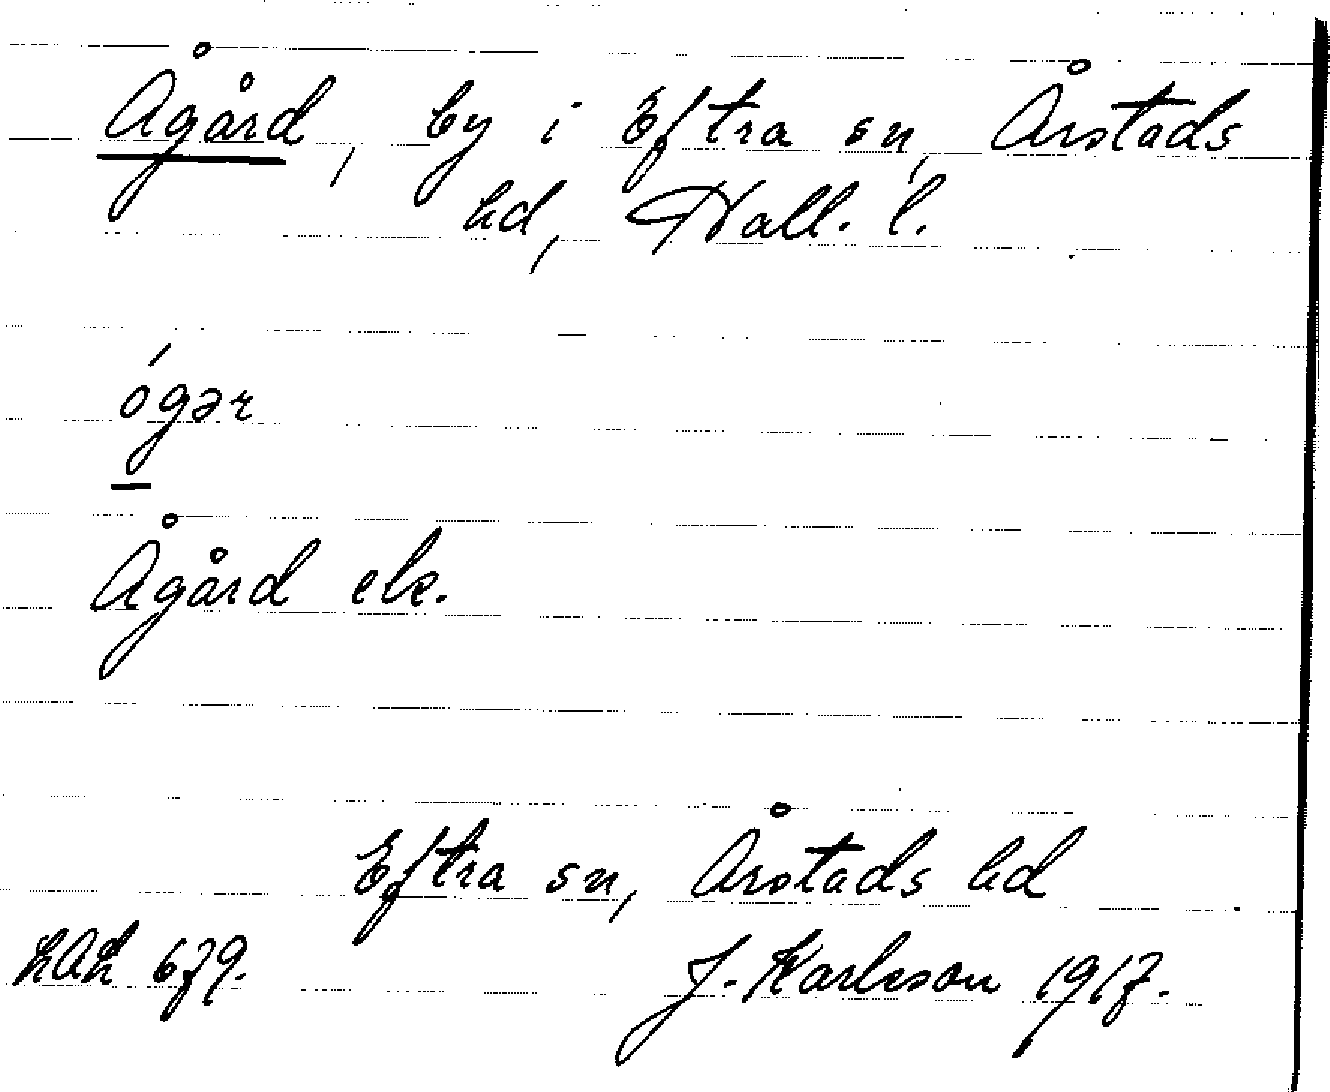 Ågård, by i Eftra sn, Årstads
hd, Hall. l.
ógər
Ågård ek.
Eftra sn, Årstads hd
LAL 679. J. Karlsson 1917.